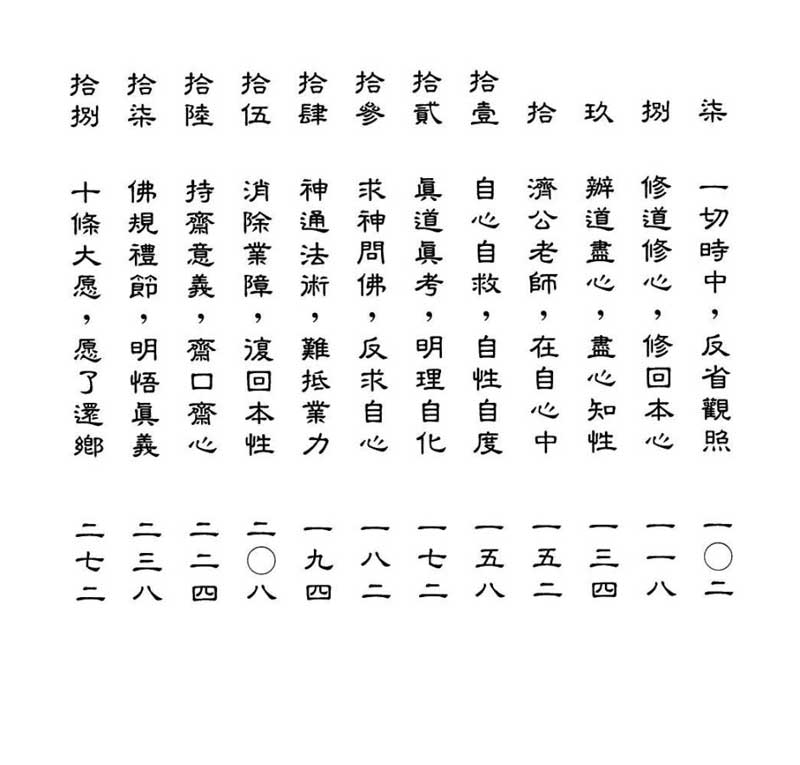 柒 一切時中，反省觀照 一〇二
捌 修道修心，修回本心 一一八
玖 辦道盡心，盡心知性 一三四
拾 濟公老師，在自心中 一五二
拾壹 自心自救，自性自度 一五八
拾貳 眞道眞考，明理自化 一七二
拾參 求神問佛，反求自心 一八二
拾肆 神通法術，難抵業力 一九四
拾伍 消除業障，復回本性 二〇八
拾陸 持齋意義，齋口齋心 二二四
拾柒 佛規禮節，明悟眞義 二三八
拾捌 十條大愿，愿了還鄉 二七二